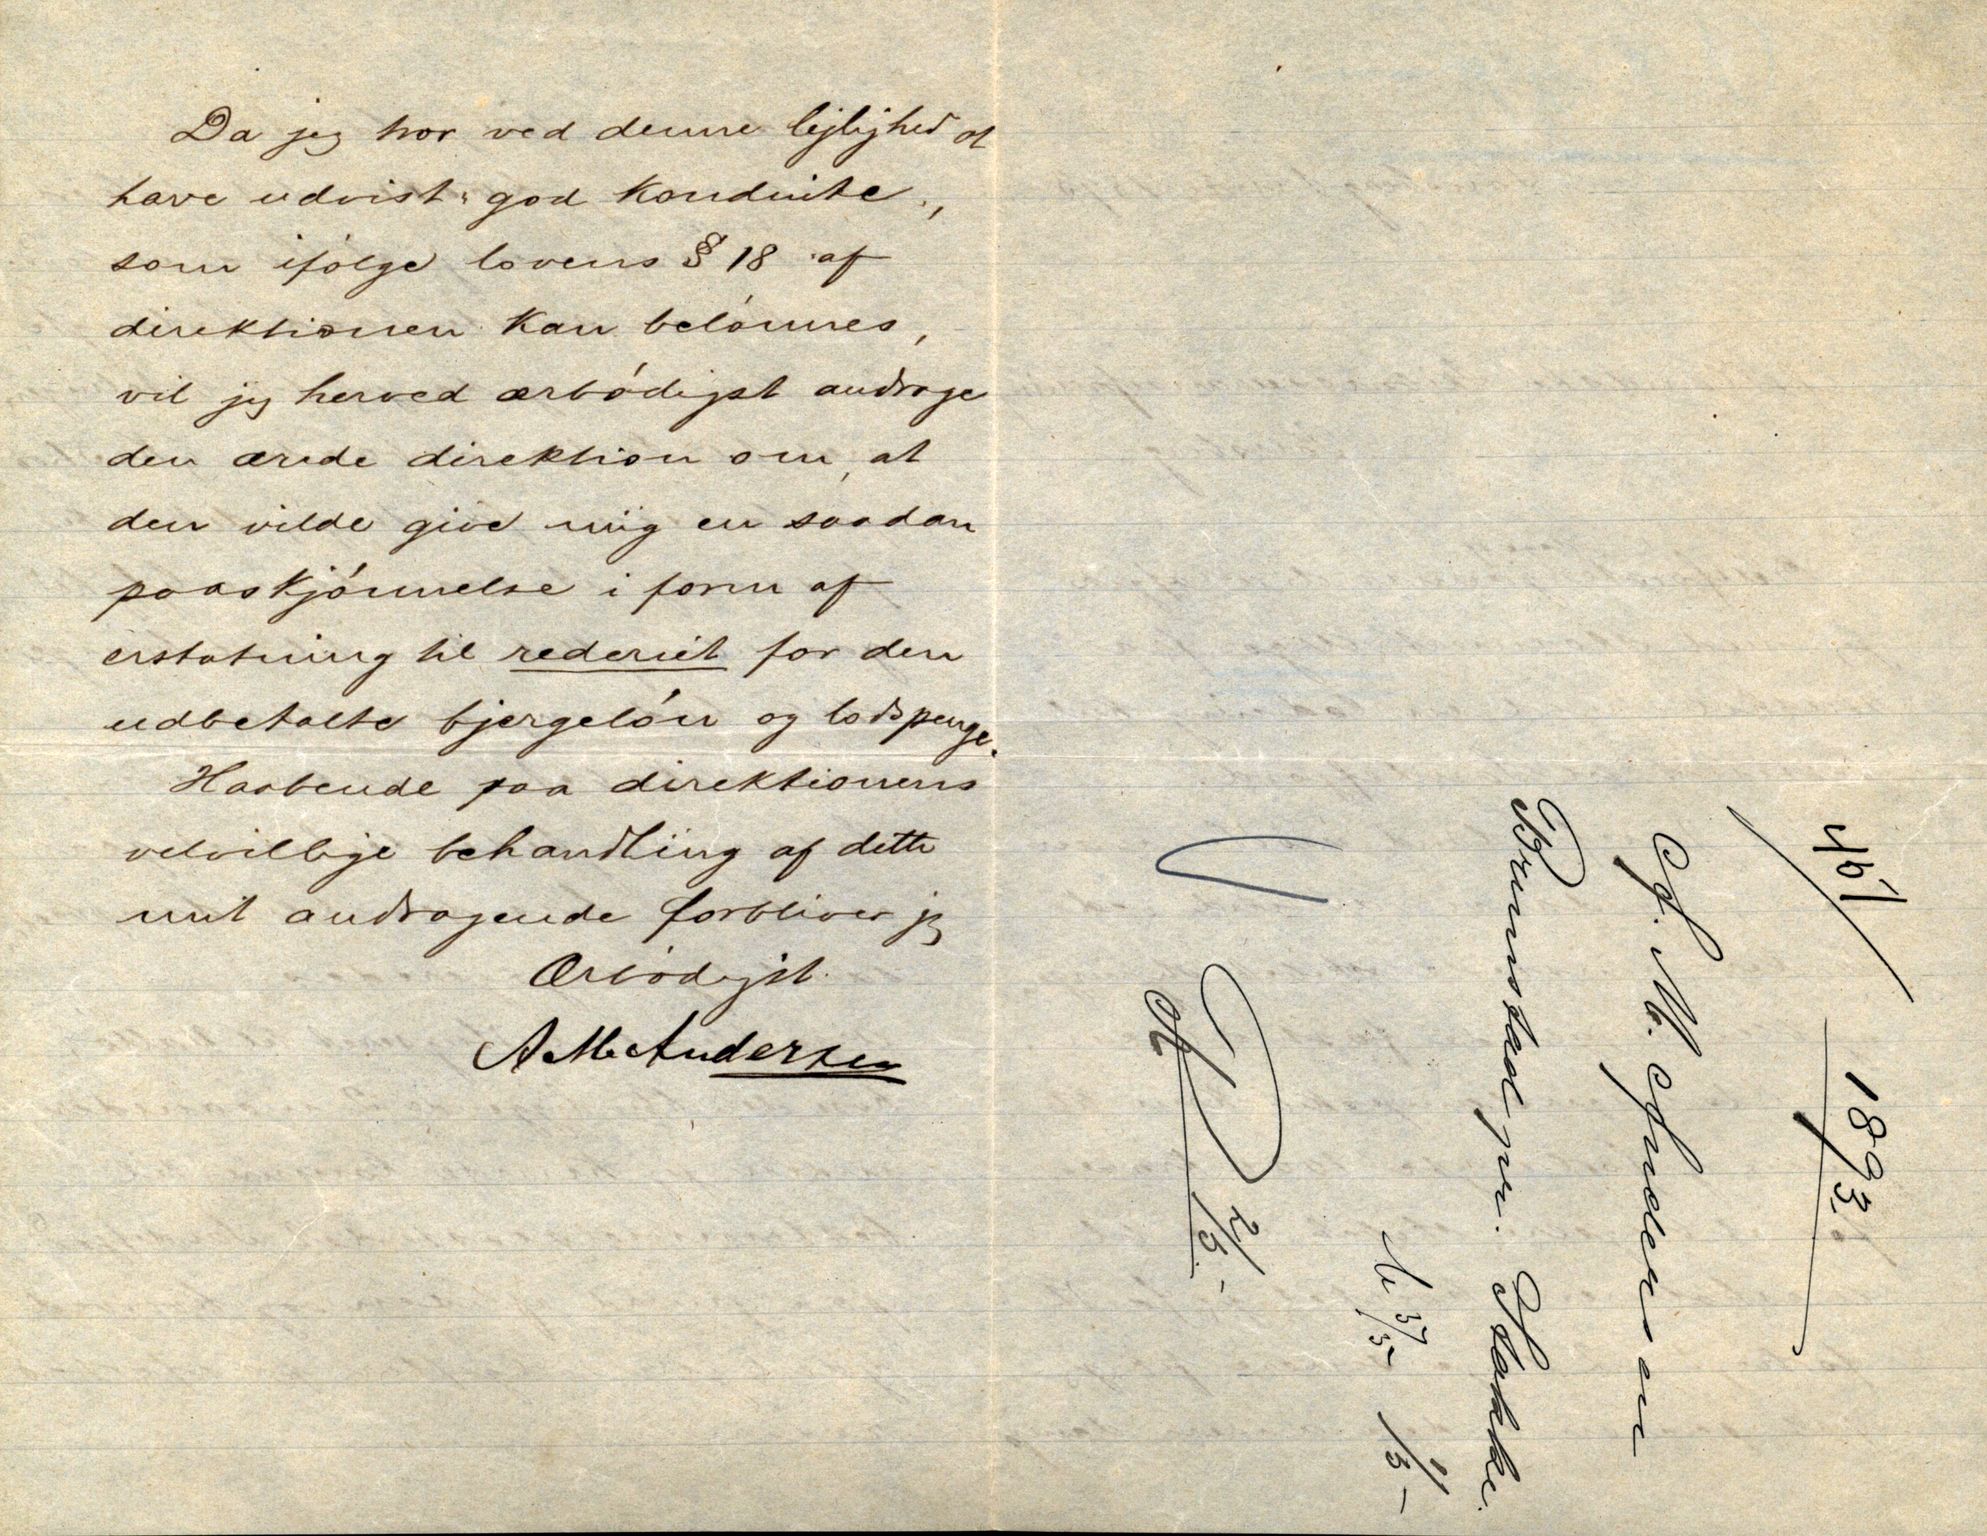 Da jeg tror ved denne lejlighed at
have udvist "god konduite",
som ifólge lovens § 18 af
direktionen kan belónnes,
vil jeg herved ærbódigst andrage
den ærede direktion om, at
den vilde give mig en saadan
paaskjónnelse i form af
erstatning til rederiet for den
udbetalte bjergelón og lodspenge.
Haabende paa direktionens
velvillige behandling af dette
mit andragende forbliver jeg
Ærbódigst
A. M. Andersen
1893
A. M. Andersen
Brunstad pr. Stokke.
2/5.-
1/5-